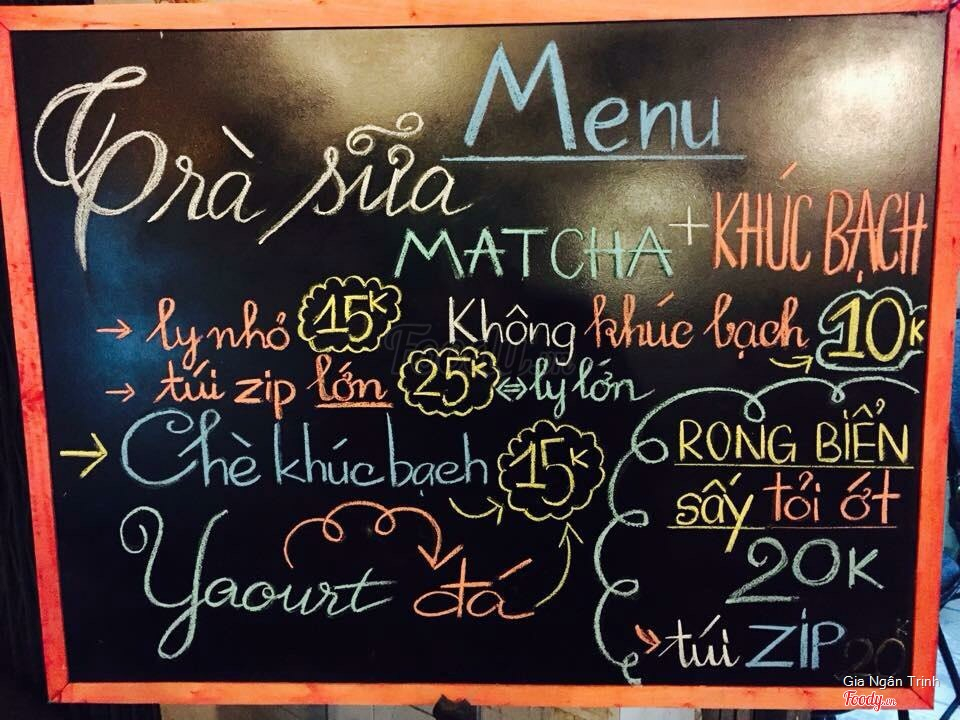 Menu
Trà sữa
MATCHA + KHÚC BẠCH
→ ly nhỏ 15K Không khúc bạch → 10K
→ túi zip lớn 25K ⇔ ly lớn
→ Chè khúc bạch → 15K
Yaourt đá
RONG BIỂN
sấy tỏi ớt
20K
→ túi ZIP 20K
Foody.vn
Gia Ngân Trinh
Foody.vn